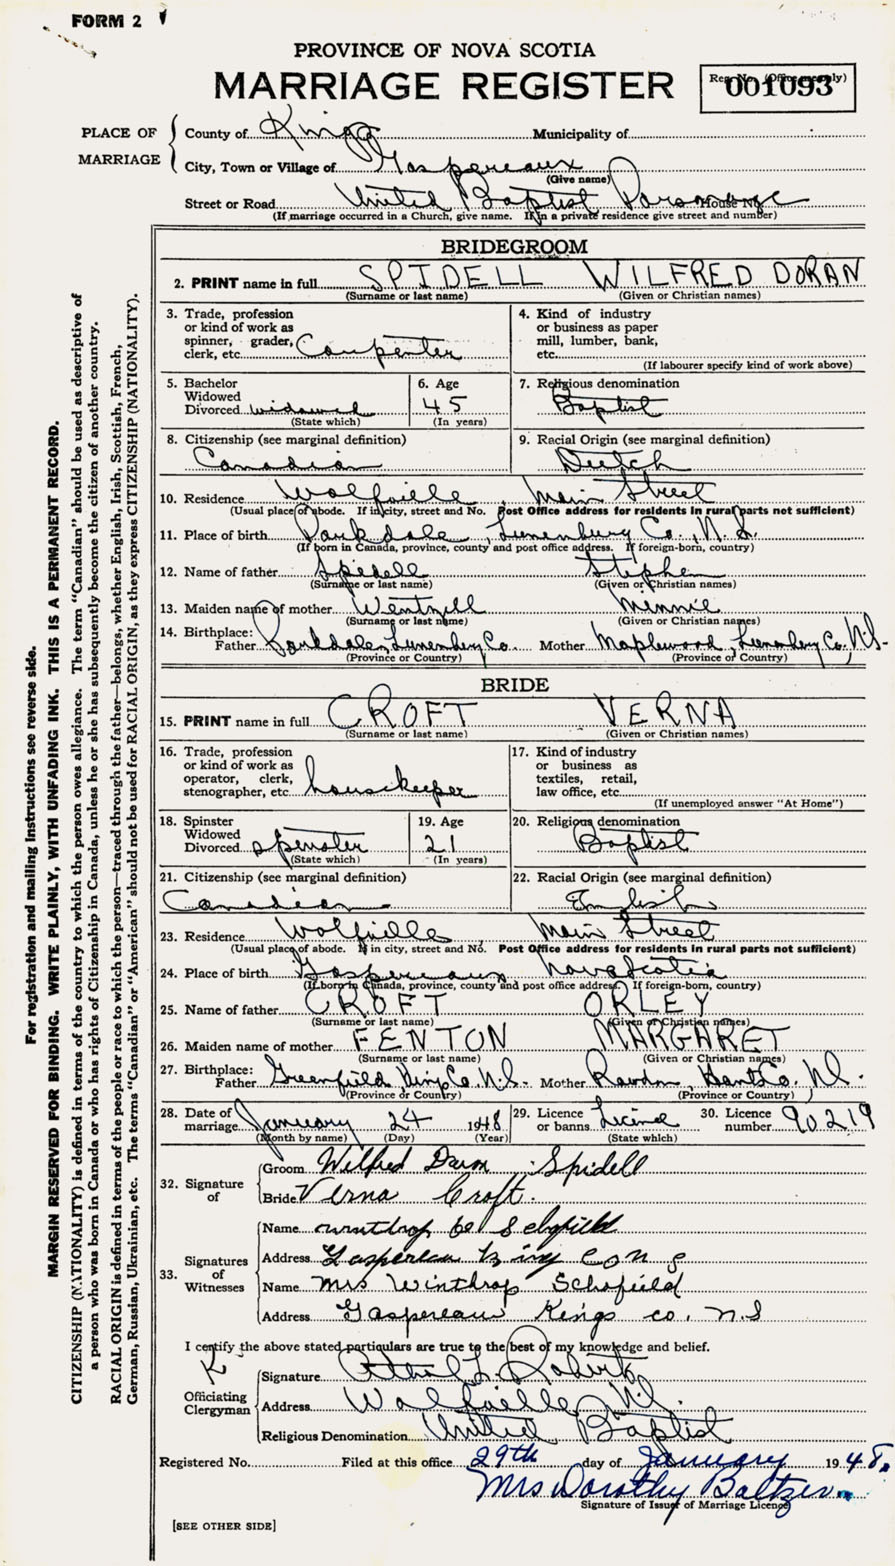 FORM 2
PROVINCE OF NOVA SCOTIA
MARRIAGE REGISTER
Reg. No. (Office use only)
001093
PLACE OF MARRIAGE
County of Kings Municipality of
City, Town or Village of Gaspereaux
(Give name)
Street or Road United Baptist Parsonage House No.
(If marriage occurred in a Church, give name. If in a private residence give street and number)
BRIDEGROOM
2. PRINT name in full SPIDELL WILFRED DORAN
(Surname or last name) (Given or Christian names)
3. Trade, profession or kind of work as spinner, grader, clerk, etc. Carpenter
4. Kind of industry or business as paper mill, lumber, bank, etc.
(If labourer specify kind of work above)
5. Bachelor Widowed Divorced widowed
(State which)
6. Age 45
(In years)
7. Religious denomination Baptist
8. Citizenship (see marginal definition) Canadian
9. Racial Origin (see marginal definition) Dutch
10. Residence Wolfville Main Street
(Usual place of abode. If in city, street and No. Post Office address for residents in rural parts not sufficient)
11. Place of birth Parkdale, Lunenburg Co., N.S.
(If born in Canada, province, county and post office address. If foreign-born, country)
12. Name of father Spidell Stephen
(Surname or last name) (Given or Christian names)
13. Maiden name of mother Wentzell Minnie
(Surname or last name) (Given or Christian names)
14. Birthplace: Father Parkdale, Lunenburg Co. Mother Maplewood, Lunenburg Co., N.S.
(Province or Country) (Province or Country)
BRIDE
15. PRINT name in full CROFT VERNA
(Surname or last name) (Given or Christian names)
16. Trade, profession or kind of work as operator, clerk, stenographer, etc. housekeeper
17. Kind of industry or business as textiles, retail, law office, etc.
(If unemployed answer "At Home")
18. Spinster Widowed Divorced spinster
(State which)
19. Age 21
(In years)
20. Religious denomination Baptist
21. Citizenship (see marginal definition) Canadian
22. Racial Origin (see marginal definition) English
23. Residence Wolfville Main Street
(Usual place of abode. If in city, street and No. Post Office address for residents in rural parts not sufficient)
24. Place of birth Gaspereaux Nova Scotia
(If born in Canada, province, county and post office address. If foreign-born, country)
25. Name of father CROFT ORLEY
(Surname or last name) (Given or Christian names)
26. Maiden name of mother FENTON MARGARET
(Surname or last name) (Given or Christian names)
27. Birthplace: Father Greenfield, Kings Co. N.S. Mother Rawdon, Hants Co. N.S.
(Province or Country) (Province or Country)
28. Date of marriage January 24 1948
(Month by name) (Day) (Year)
29. Licence or banns License
(State which)
30. Licence number 90219
32. Signature of
Groom Wilfred Spidell
Bride Verna Croft.
33. Signatures of Witnesses
Name Winthrop Schofield
Address Gaspereau King Co N S
Name Mrs Winthrop Schofield
Address Gaspereau Kings co. N.S
I certify the above stated particulars are true to the best of my knowledge and belief.
Officiating Clergyman
Signature L. Roberts
Address Wolfville, N.S.
Religious Denomination United Baptist
Registered No. Filed at this office 29th day of January 1948.
Mrs Dorothy Baltzer
Signature of Issuer of Marriage Licence
[SEE OTHER SIDE]
For registration and mailing instructions see reverse side.
MARGIN RESERVED FOR BINDING. WRITE PLAINLY, WITH UNFADING INK. THIS IS A PERMANENT RECORD.
CITIZENSHIP (NATIONALITY) is defined in terms of the country to which the person owes allegiance. The term "Canadian" should be used as descriptive of
a person who was born in Canada or who has rights of Citizenship in Canada, unless he or she has subsequently become the citizen of another country.
RACIAL ORIGIN is defined in terms of the people or race to which the person—traced through the father—belongs, whether English, Irish, Scottish, French,
German, Russian, Ukrainian, etc. The terms "Canadian" or "American" should not be used for RACIAL ORIGIN, as they express CITIZENSHIP (NATIONALITY).